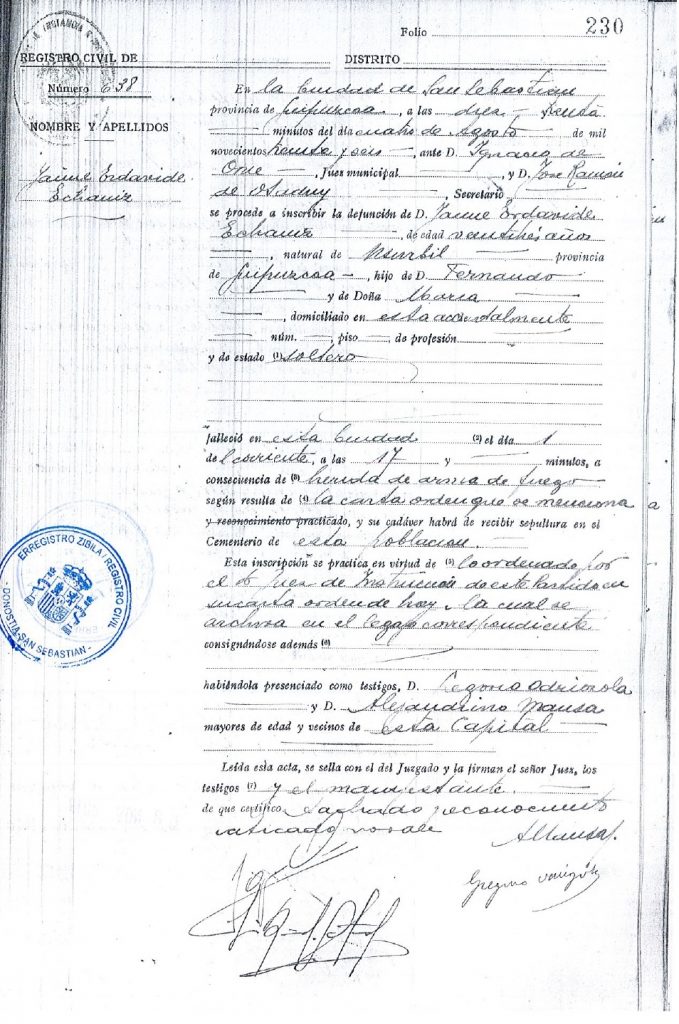 Folio 230
REGISTRO CIVIL DE DISTRITO
Número 638
NOMBRE Y APELLIDOS
Jaime Erdavide
Echaniz
En la Ciudad de San Sebastian
provincia de Guipuzcoa, a las diez, treinta
minutos del día cuatro de Agosto de mil
novecientos treinta y seis, ante D. Ignacio de
Orue, Juez municipal y D. Jose Ramón
de, Secretario
se procede a inscribir la defunción de D. Jaime Erdavide
Echaniz, de edad veintitrés años
, natural de Usurbil provincia
de Guipuzcoa, hijo de D. Fernando
y de Doña Maria
, domiciliado en esta accidentalmente
núm. , piso de profesión
y de estado (1) soltero
falleció en esta Ciudad (2) el día 1
del corriente, a las 17 y minutos, a
consecuencia de (3) herida de arma de fuego
según resulta de (4) la carta orden que se menciona
y reconocimiento practicado, y su cadáver habrá de recibir sepultura en el
Cementerio de esta poblacion.
Esta inscripción se practica en virtud de (5) lo ordenado por
el Sr Juez de Instrucción de este Partido en
su carta orden de hoy, la cual se
archiva en el legajo correspondiente
consignándose además (6)
habiéndola presenciado como testigos, D.
y D. Alejandrino Mansa
mayores de edad y vecinos de esta Capital
Leída esta acta, se sella con el del Juzgado y la firman el señor Juez, los
testigos (7) y el manifestante.
de que certifico. tachado reconocimiento
practicado no vale
AMansa
ERREGISTRO ZIBILA / REGISTRO CIVIL
- DONOSTIA-SAN SEBASTIAN -